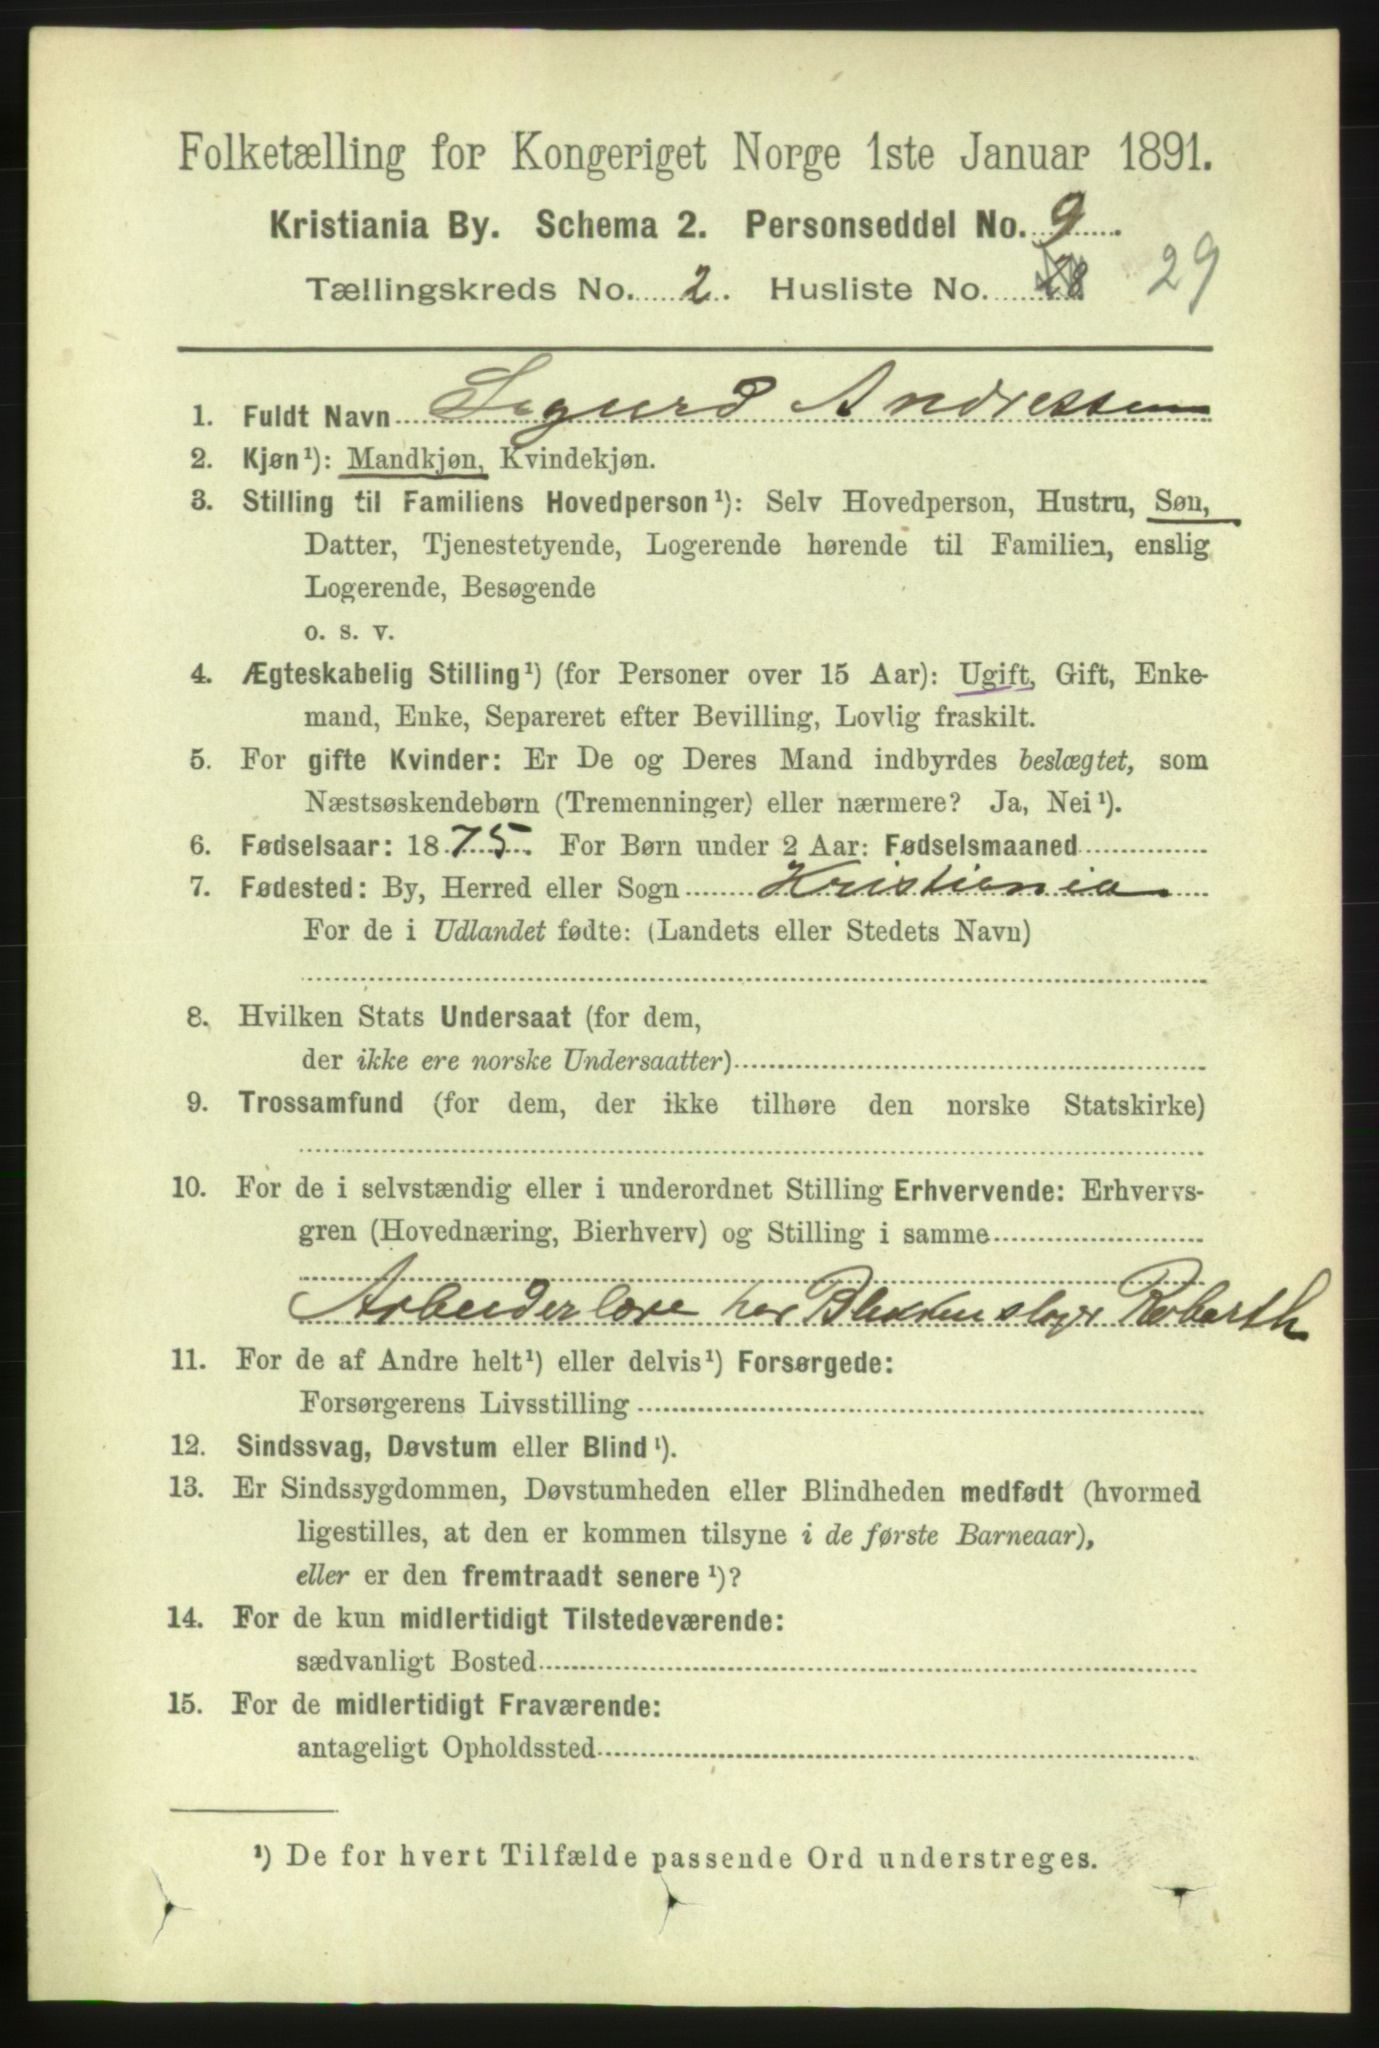 Folketælling for Kongeriget Norge 1ste Januar 1891.
Kristiania By. Schema 2. Personseddel No. 9
Tællingskreds No. 2. Husliste No. 28 29
1. Fuldt Navn Sigurd Andressen
2. Kjøn¹): Mandkjøn, Kvindekjøn.
3. Stilling til Familiens Hovedperson¹): Selv Hovedperson, Hustru, Søn,
Datter, Tjenestetyende, Logerende hørende til Familien, enslig
Logerende, Besøgende
o. s. v.
4. Ægteskabelig Stilling¹) (for Personer over 15 Aar): Ugift, Gift, Enke-
mand, Enke, Separeret efter Bevilling, Lovlig fraskilt.
5. For gifte Kvinder: Er De og Deres Mand indbyrdes beslægtet, som
Næstsøskendebørn (Tremenninger) eller nærmere? Ja, Nei¹).
6. Fødselsaar: 1875. For Børn under 2 Aar: Fødselsmaaned
7. Fødested: By, Herred eller Sogn Kristiania
For de i Udlandet fødte: (Landets eller Stedets Navn)
8. Hvilken Stats Undersaat (for dem,
der ikke ere norske Undersaatter)
9. Trossamfund (for dem, der ikke tilhøre den norske Statskirke)
10. For de i selvstændig eller i underordnet Stilling Erhvervende: Erhvervs-
gren (Hovednæring, Bierhverv) og Stilling i samme
Arbeider lære her Robarth
11. For de af Andre helt¹) eller delvis¹) Forsørgede:
Forsørgerens Livsstilling
12. Sindssvag, Døvstum eller Blind¹).
13. Er Sindssygdommen, Døvstumheden eller Blindheden medfødt (hvormed
ligestilles, at den er kommen tilsyne i de første Barneaar),
eller er den fremtraadt senere¹)?
14. For de kun midlertidigt Tilstedeværende:
sædvanligt Bosted
15. For de midlertidigt Fraværende:
antageligt Opholdssted
¹) De for hvert Tilfælde passende Ord understreges.